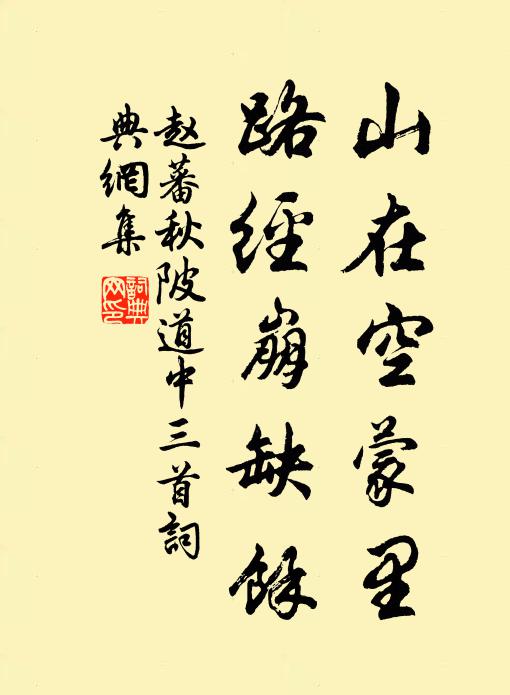 山在空蒙里
路經崩缺餘
赵蕃秋陂道中三首詞
典網集
詞典網印